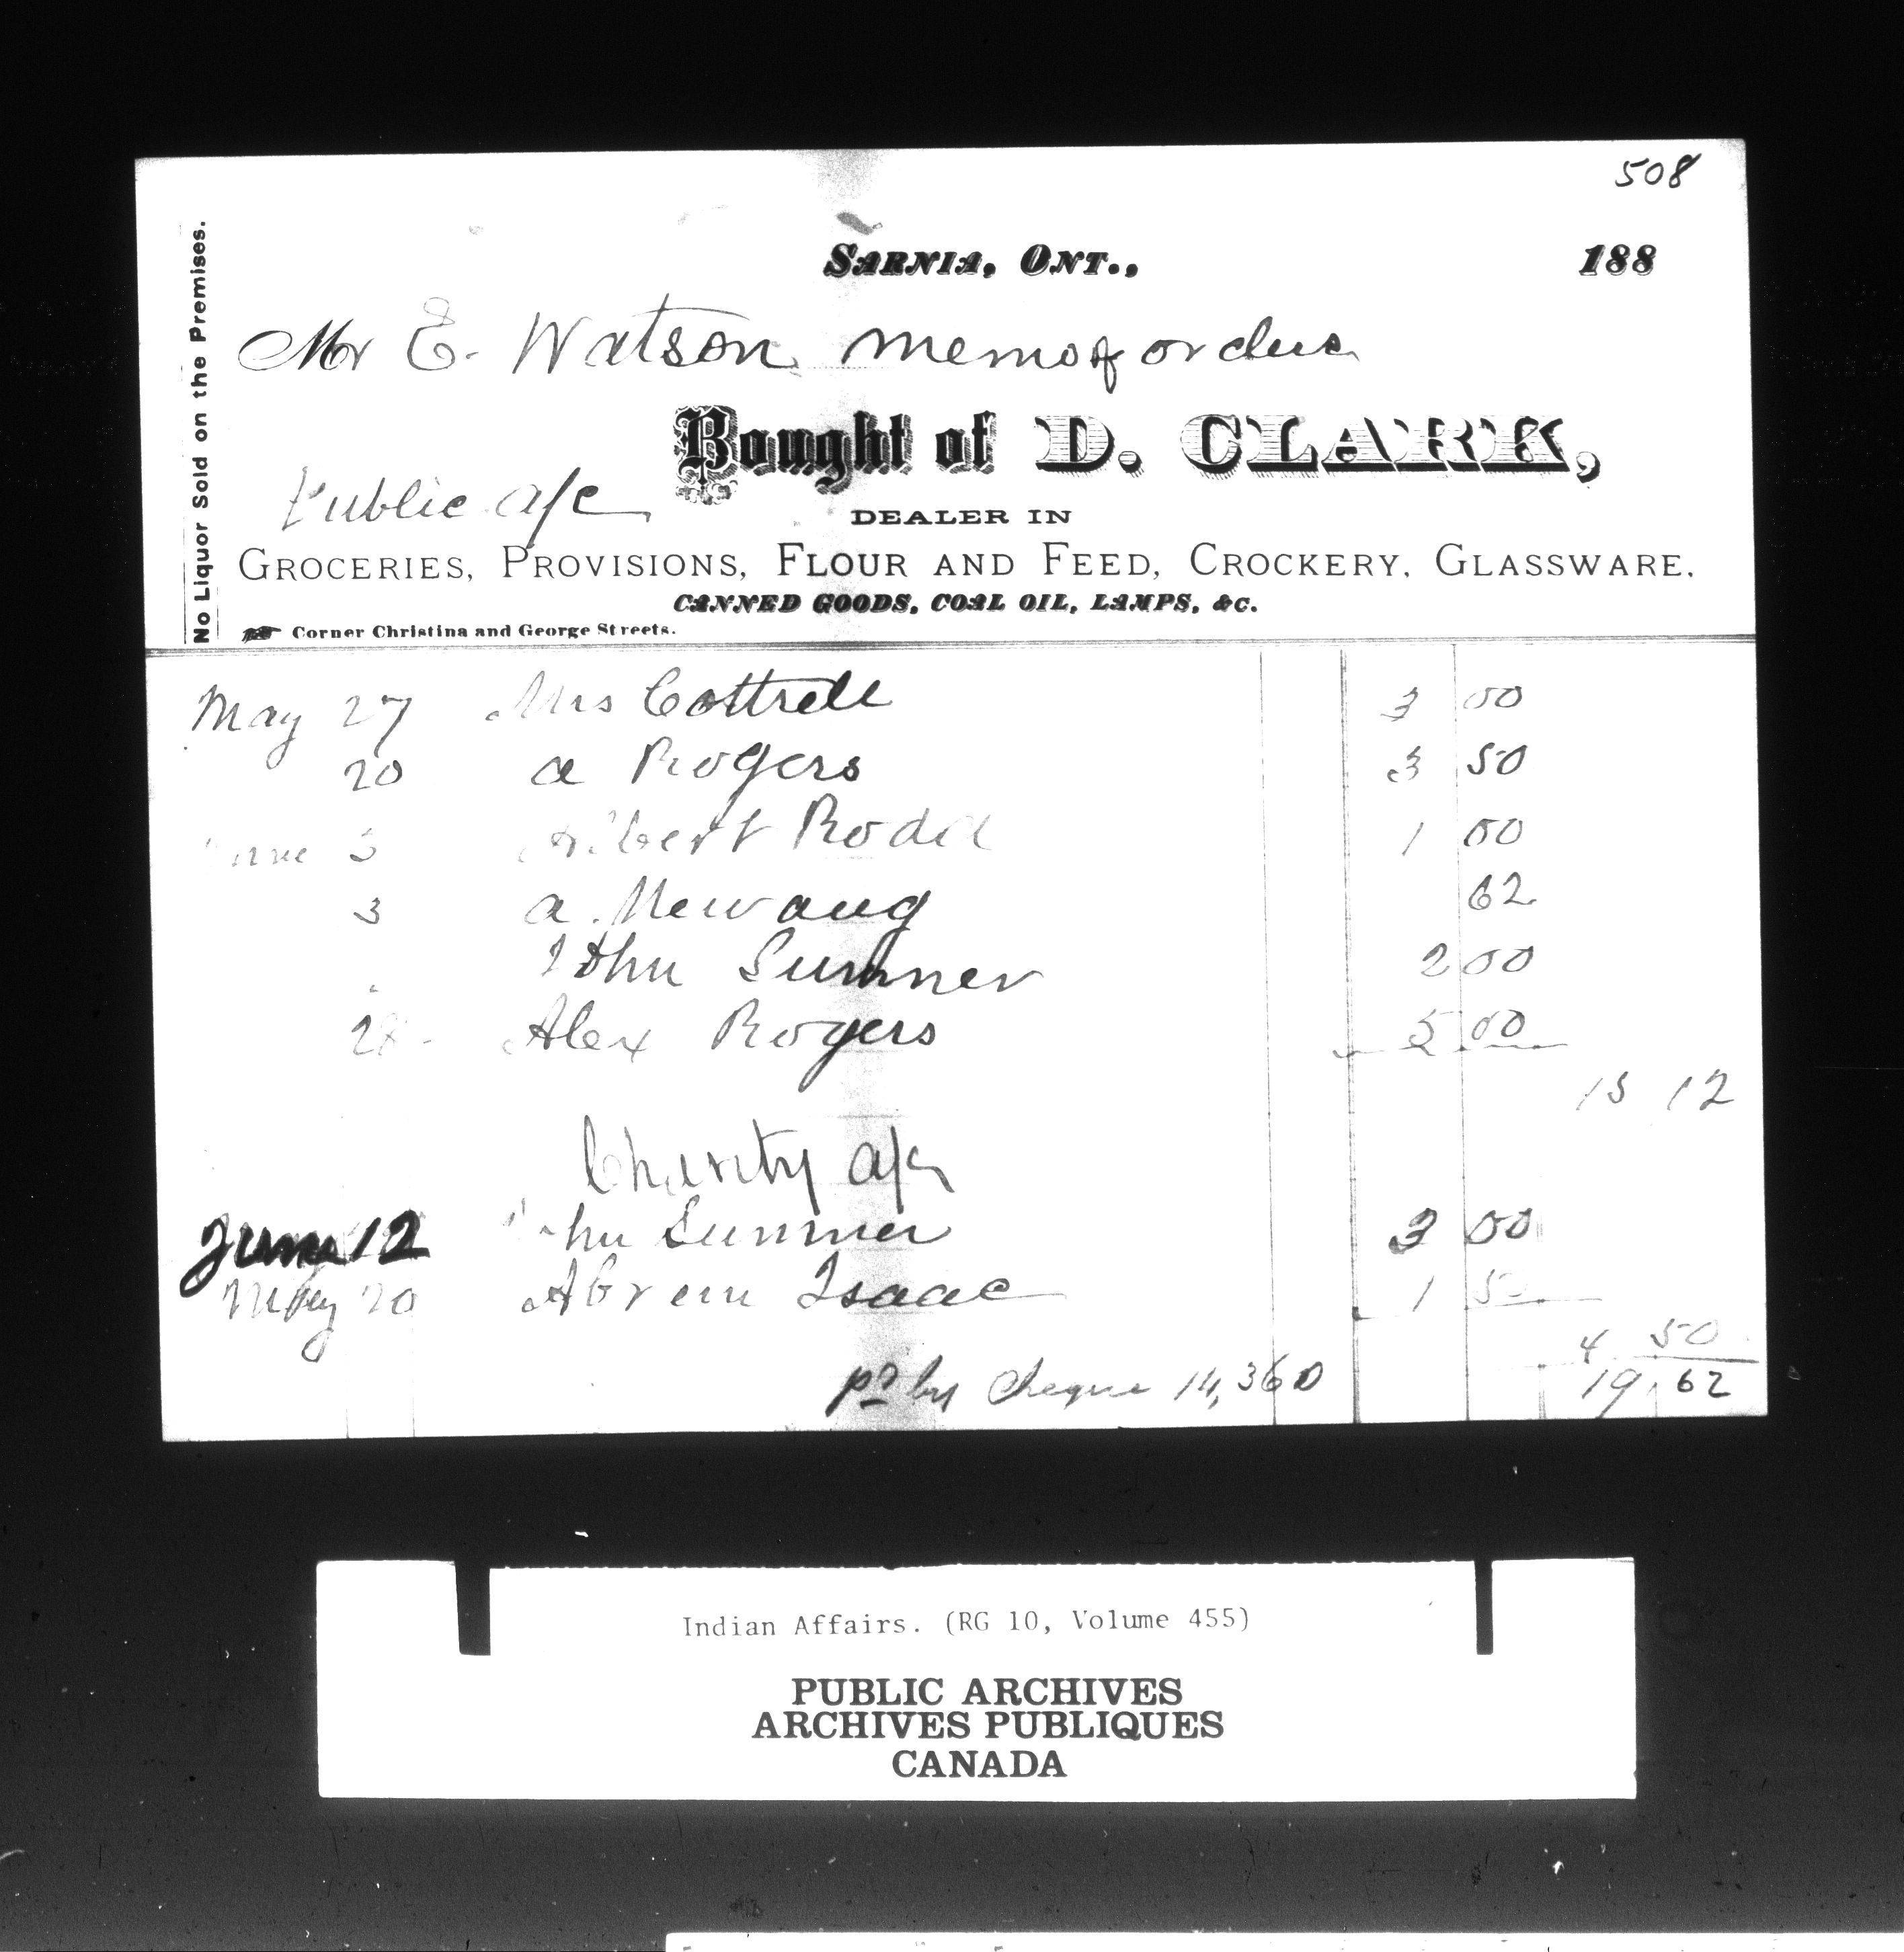 508
No Liquor Sold on the Premises.
SARNIA, ONT., 188
Mr E. Watson memo of orders
Bought of D. CLARK,
Public a/c
DEALER IN
GROCERIES, PROVISIONS, FLOUR AND FEED, CROCKERY, GLASSWARE.
CANNED GOODS, COAL OIL, LAMPS, &C.
Corner Christina and George Streets.
May 27 Mrs Cottrell 3 00
20 a Rogers 3 50
June 3 Albert Rodd 1 00
3 a. 62
John Sumner 2 00
28 Alex Rogers 5 00
15 12
Charity a/c
June 12 John Sumner 3 00
May 20 Abram Isaac 1 50
4 50
pd by Cheque 14,360 19 62
Indian Affairs. (RG 10, Volume 455)
PUBLIC ARCHIVES
ARCHIVES PUBLIQUES
CANADA